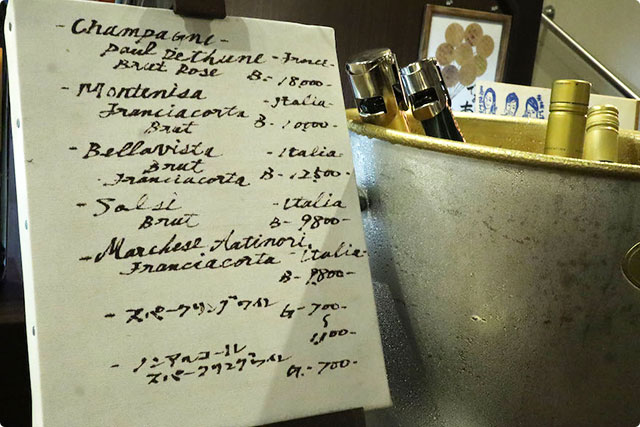 - Champagne -
Paul Dethune - France -
Brut Rose B- 18,000-
- Montenisa - Italia -
Franciacorta
Brut B- 10,000-
- Bellavista - Italia -
Brut
Franciacorta B- 12,500-
- Salsi - Italia
Brut B- 9800-
- Marchese Aatinori
Franciacorta - Italia -
B- 9800-
- スパークリングワイン G- 700-
1,100-
- ノンアルコール
スパークリングワイン G.- 700-